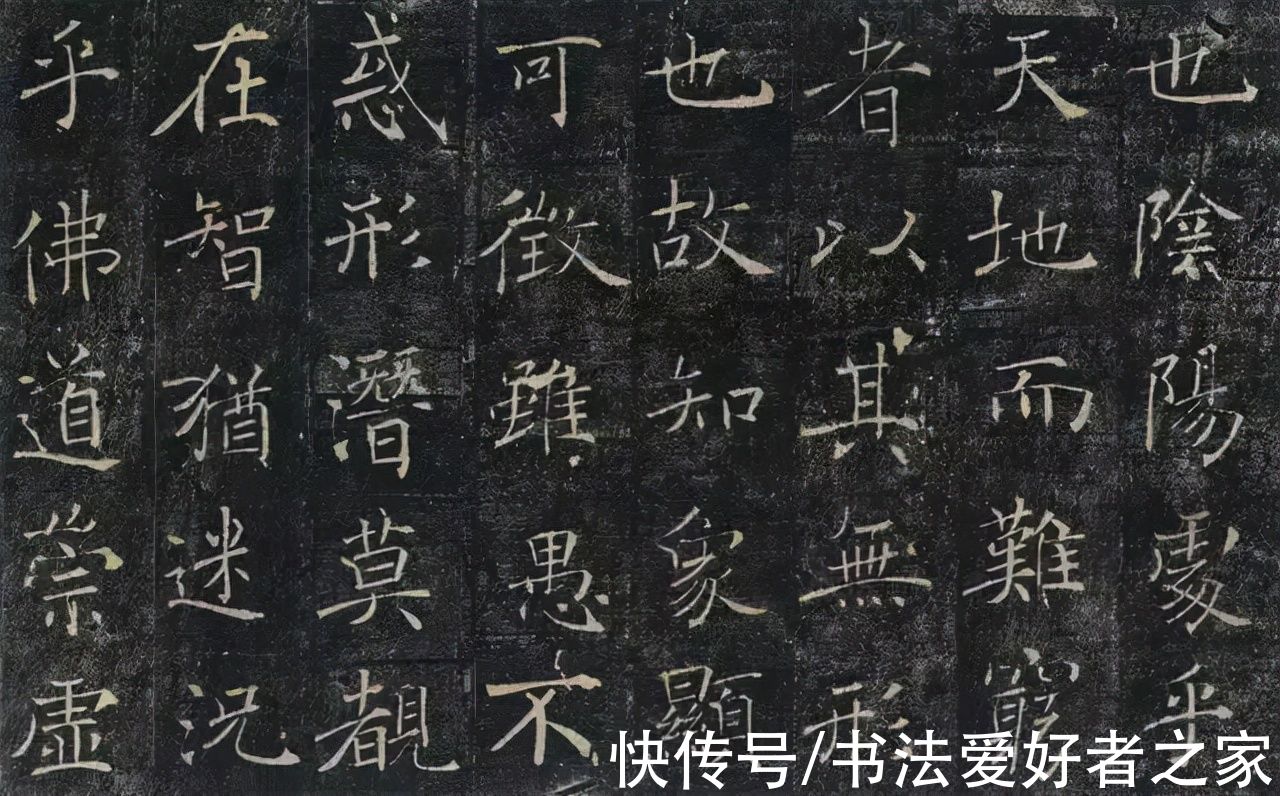 也陰陽處乎
天地而難窮
者以其無形
也故知象顯
可徵雖愚不
惑形潛莫覩
在智猶迷況
乎佛道崇虛
快传号/书法爱好者之家